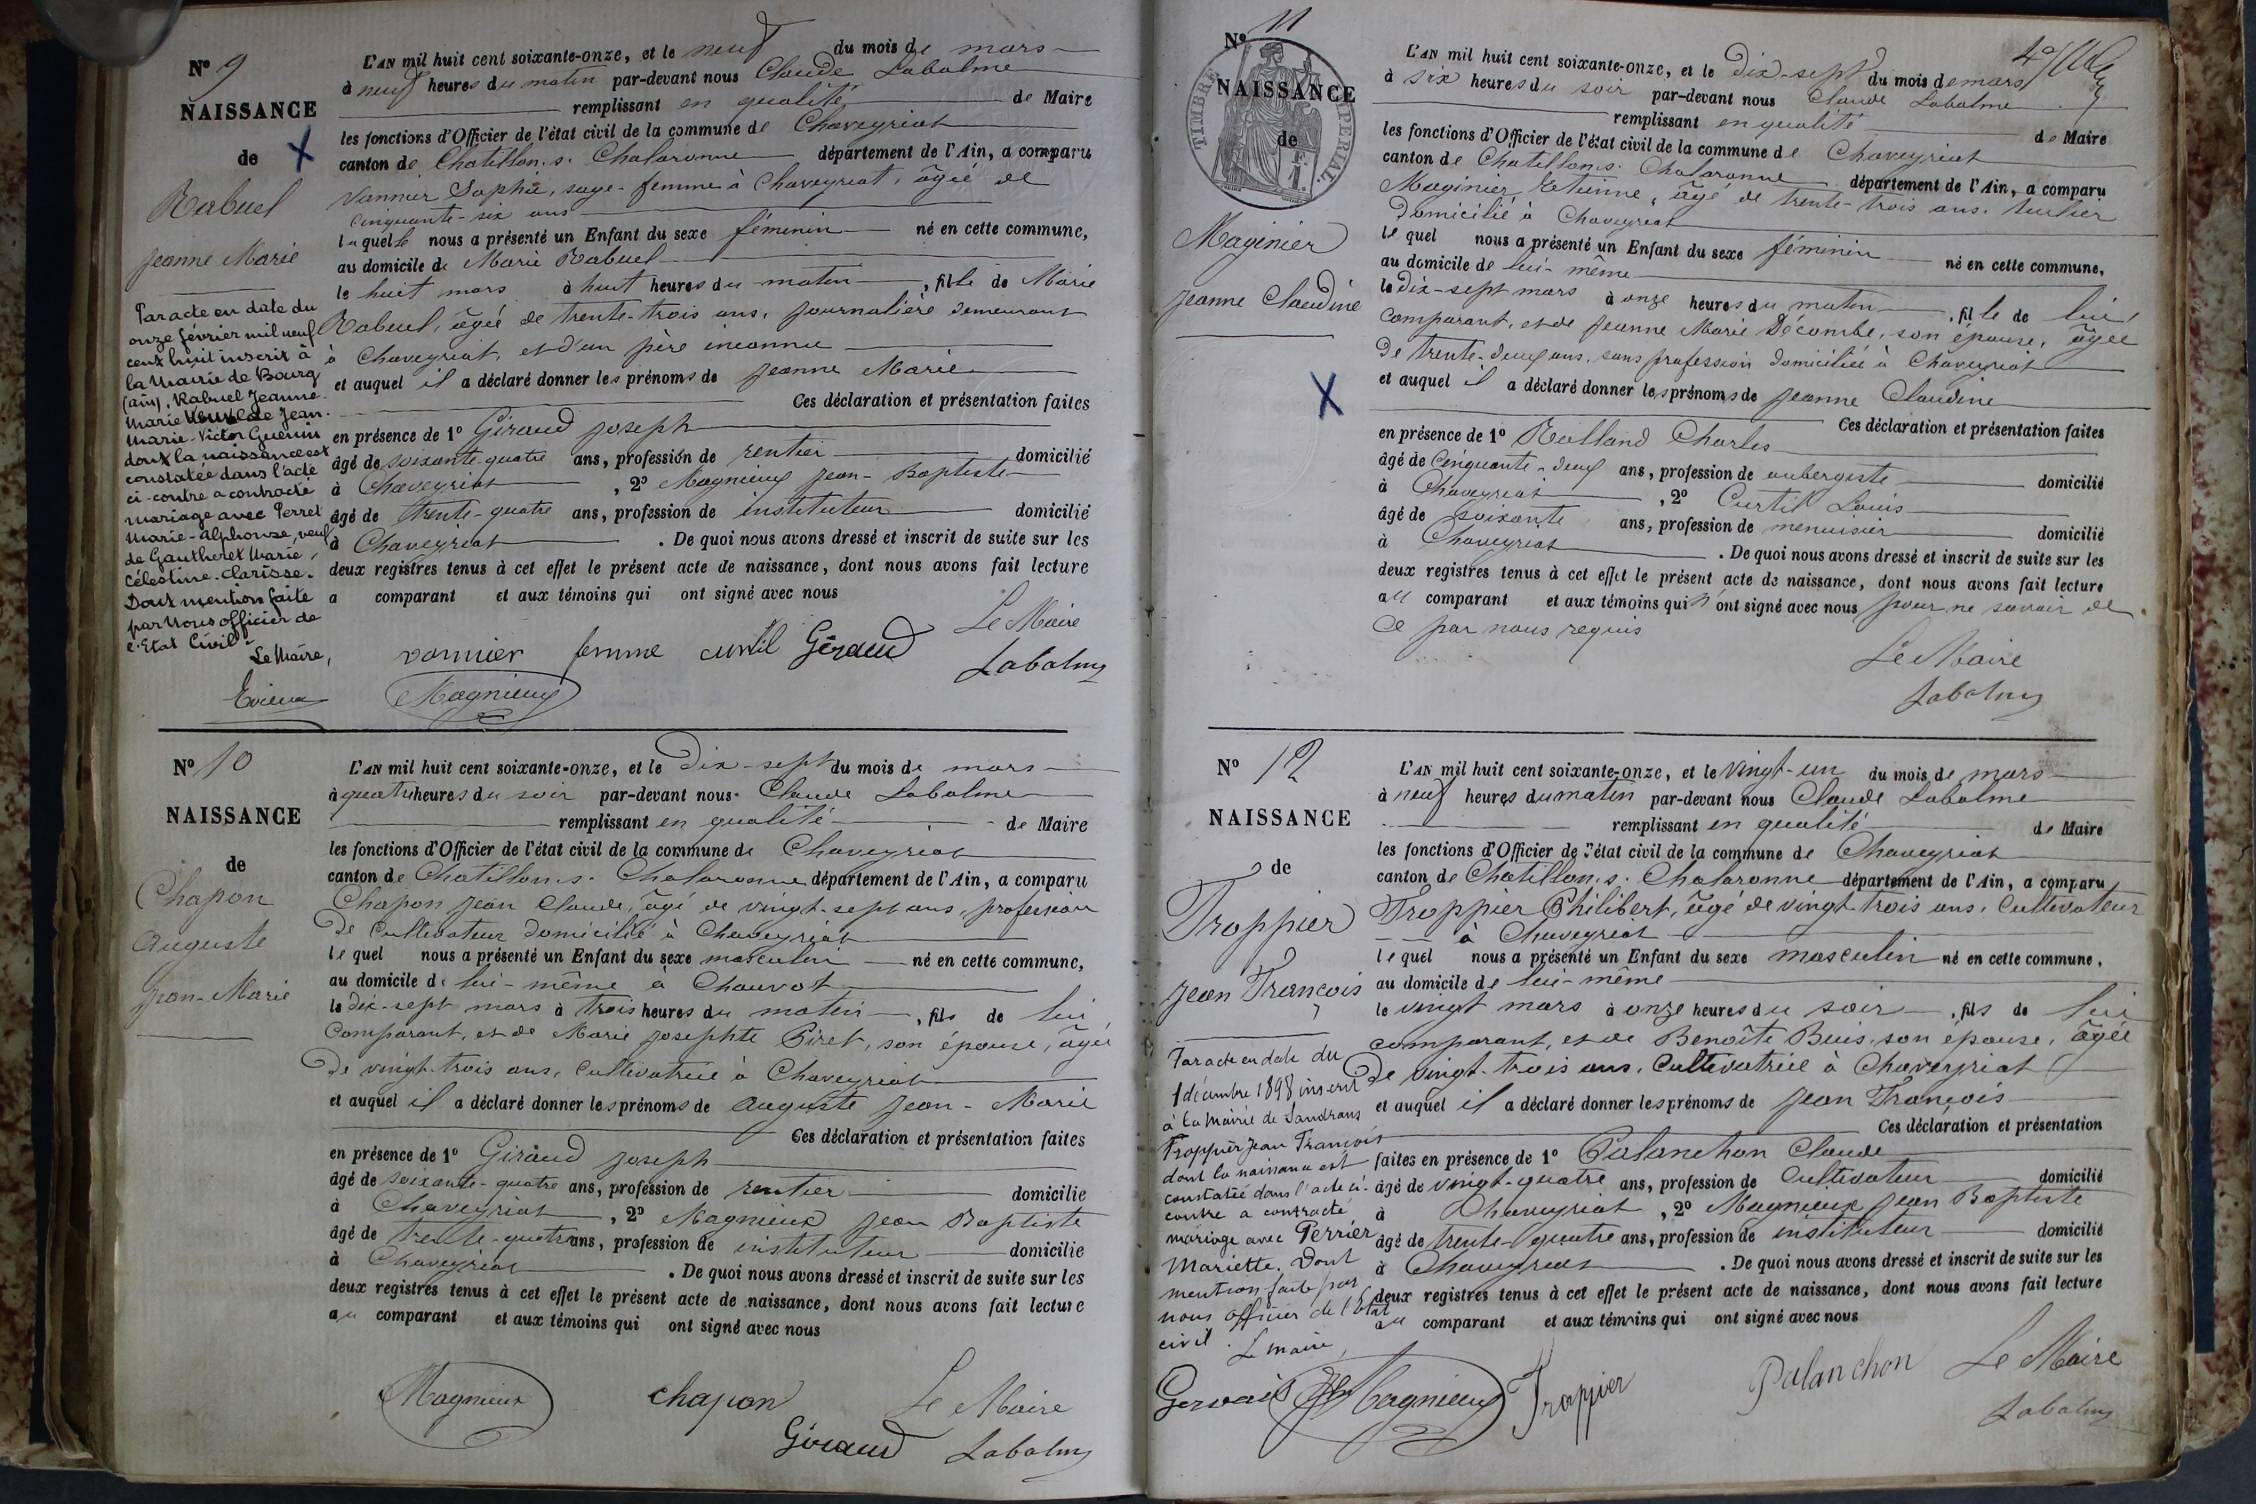 Nº 9
NAISSANCE
de
Rabuel
Jeanne Marie
Par acte en date du
onze février mil neuf
cent huit inscrit à
la Mairie de Bourg
(ain), Rabuel Jeanne-
Marie Veuve de Jean-
Marie-Victor Guenin
dont la naissance est
constatée dans l'acte
ci-contre a contracté
mariage avec Perret
Marie-Alphonse, veuf
de Gautheret Marie,
Célestine-Clarisse.
Dont mention faite
par Nous officier de
l'Etat Civil
Le Maire,
L'AN mil huit cent soixante-onze, et le neuf du mois de mars
à neuf heures du matin par-devant nous Claude Labalme
remplissant en qualité de Maire
les fonctions d'Officier de l'état civil de la commune de Chaveyriat
canton de Chatillon s. Chalaronne département de l'Ain, a comparu
Vannier Sophie, sage-femme à Chaveyriat, âgée de
cinquante-six ans
laquelle nous a présenté un Enfant du sexe féminin né en cette commune,
au domicile de Marie Rabuel
le huit mars à huit heures du matin, fille de Marie
Rabuel, âgée de trente-trois ans, journalière demeurant
à Chaveyriat, et d'un père inconnu
et auquel il a déclaré donner les prénoms de Jeanne Marie
Ces déclaration et présentation faites
en présence de 1º Giraud Joseph
âgé de soixante-quatre ans, profession de rentier domicilié
à Chaveyriat, 2º Magnieux Jean-Baptiste
âgé de trente-quatre ans, profession de instituteur domicilié
à Chaveyriat. De quoi nous avons dressé et inscrit de suite sur les
deux registres tenus à cet effet le présent acte de naissance, dont nous avons fait lecture
a comparant et aux témoins qui ont signé avec nous
Le Maire
vannier femme curtil Géraud Labalme
Magnieux
Nº 10
NAISSANCE
de
Chapon
Auguste
Jean-Marie
L'AN mil huit cent soixante-onze, et le Dix-sept du mois de mars
à quatre heures du soir par-devant nous Claude Labalme
remplissant en qualité de Maire
les fonctions d'Officier de l'état civil de la commune de Chaveyriat
canton de Chatillon s. Chalaronne département de l'Ain, a comparu
Chapon Jean Claude, âgé de vingt-sept ans, profession
de cultivateur domicilié à Chaveyriat
lequel nous a présenté un Enfant du sexe masculin né en cette commune,
au domicile de lui-même à Chauvot
le dix-sept mars à trois heures du matin, fils de lui
comparant, et de Marie Josephte Piret, son épouse, âgée
De vingt-trois ans, cultivatrice à Chaveyriat
et auquel il a déclaré donner les prénoms de Auguste Jean-Marie
Ces déclaration et présentation faites
en présence de 1º Giraud Joseph
âgé de soixante-quatre ans, profession de rentier domicilié
à Chaveyriat, 2º Magnieux Jean Baptiste
âgé de trente-quatre ans, profession de instituteur domicilié
à Chaveyriat. De quoi nous avons dressé et inscrit de suite sur les
deux registres tenus à cet effet le présent acte de naissance, dont nous avons fait lecture
au comparant et aux témoins qui ont signé avec nous
Magnieux chapon Le Maire
Géraud Labalme
Nº 11
NAISSANCE
de
TIMBRE IMPERIAL
Maginier
Jeanne Claudine
L'AN mil huit cent soixante-onze, et le Dix-sept du mois de mars
à six heures du soir par-devant nous Claude Labalme
remplissant en qualité de Maire
les fonctions d'Officier de l'état civil de la commune de Chaveyriat
canton de Chatillon s. Chalaronne département de l'Ain, a comparu
Maginier Etienne, âgé de trente-trois ans, tuilier
Domicilié à Chaveyriat
lequel nous a présenté un Enfant du sexe féminin né en cette commune,
au domicile de lui-même
le Dix-sept mars à onze heures du matin, fille de lui
comparant, et de Jeanne Marie Décombe, son épouse, âgée
De trente-deux ans, sans profession domiciliée à Chaveyriat
et auquel il a déclaré donner les prénoms de Jeanne Claudine
Ces déclaration et présentation faites
en présence de 1º Rolland Charles
âgé de cinquante-deux ans, profession de aubergiste domicilié
à Chaveyriat, 2º Curtil Louis
âgé de soixante ans, profession de menuisier domicilié
à Chaveyriat. De quoi nous avons dressé et inscrit de suite sur les
deux registres tenus à cet effet le présent acte de naissance, dont nous avons fait lecture
au comparant et aux témoins qui n'ont signé avec nous pour ne savoir de
ce par nous requis
Le Maire
Labalme
Nº 12
NAISSANCE
de
Troppier
Jean François
Par acte en date du
1 décembre 1898 inscrit
à la Mairie de Sandrans
Troppier Jean François
dont la naissance est
constatée dans l'acte ci-
contre a contracté
mariage avec Perrier
Mariette. Dont
mention faite par
nous officier de l'Etat
civil. Le maire,
Gervais
L'AN mil huit cent soixante-onze, et le vingt-un du mois de mars
à neuf heures du matin par-devant nous Claude Labalme
remplissant en qualité de Maire
les fonctions d'Officier de l'état civil de la commune de Chaveyriat
canton de Chatillon s. Chalaronne département de l'Ain, a comparu
Troppier Philibert, âgé de vingt trois ans, cultivateur
à Chaveyriat
lequel nous a présenté un Enfant du sexe masculin né en cette commune,
au domicile de lui-même
le vingt mars à onze heures du soir, fils de lui
comparant, et de Benoîte Buis, son épouse, âgée
De vingt-trois ans, cultivatrice à Chaveyriat
et auquel il a déclaré donner les prénoms de Jean François
Ces déclaration et présentation
faites en présence de 1º Palanchon Claude
âgé de vingt-quatre ans, profession de cultivateur domicilié
à Chaveyriat, 2º Magnieux Jean Baptiste
âgé de trente-quatre ans, profession de instituteur domicilié
à Chaveyriat. De quoi nous avons dressé et inscrit de suite sur les
deux registres tenus à cet effet le présent acte de naissance, dont nous avons fait lecture
au comparant et aux témoins qui ont signé avec nous
Magnieux Troppier Palanchon Le Maire
Labalme